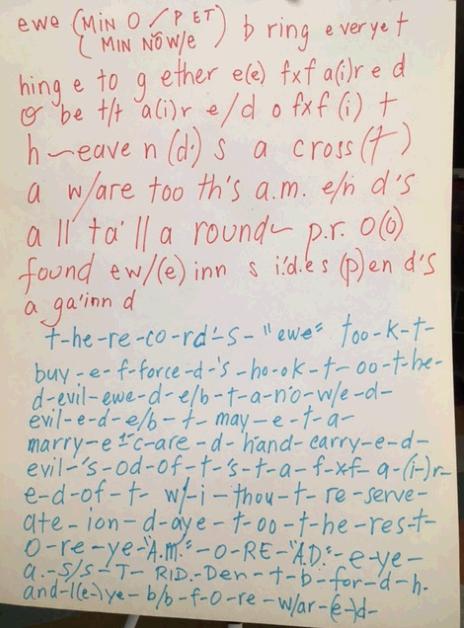 ewe (MiN O / P ET) b ring e verye t
( MIN NOW/e )
hing e to g ether e(e) fxf a(i)r e d
or be t/t a(i)r e/d o fxf (i) t
h~eave n (d.) s a cross(t)
a w/are too th's a.m. e/n d's
a ll' ta' ll a round~ p.r. O(o)
found e w/(e) inn s i'd.es (p)en d'S
a ga'inn d
t-he-re-co-rd'-s- "ewe" too-k-t-
buy-e-f-force-d-'s-ho-ok-t-oo-t-he-
d-evil-ewe-d-e/b-t-a-no-w/e-d-
evil-e-d-e/b-t-may-e-t-a-
marry-e-c-are-d-hand-carry-e-d-
evil-'s-od-of-t-'s-t-a-f-xf-a-(i)-r-
e-d-of-t- w/-i-thou-t-re-serve-
ate-ion-d-aye-t-oo-t-he-res-t-
O-re-ye-"A.M."-O-RE-"A.D."-e-ye-
a.-S/S-T-RID.-Den-t-b-for-d-h-
and-l(e-)ye-b/b-f-o-re-w/ar-(e-)d-